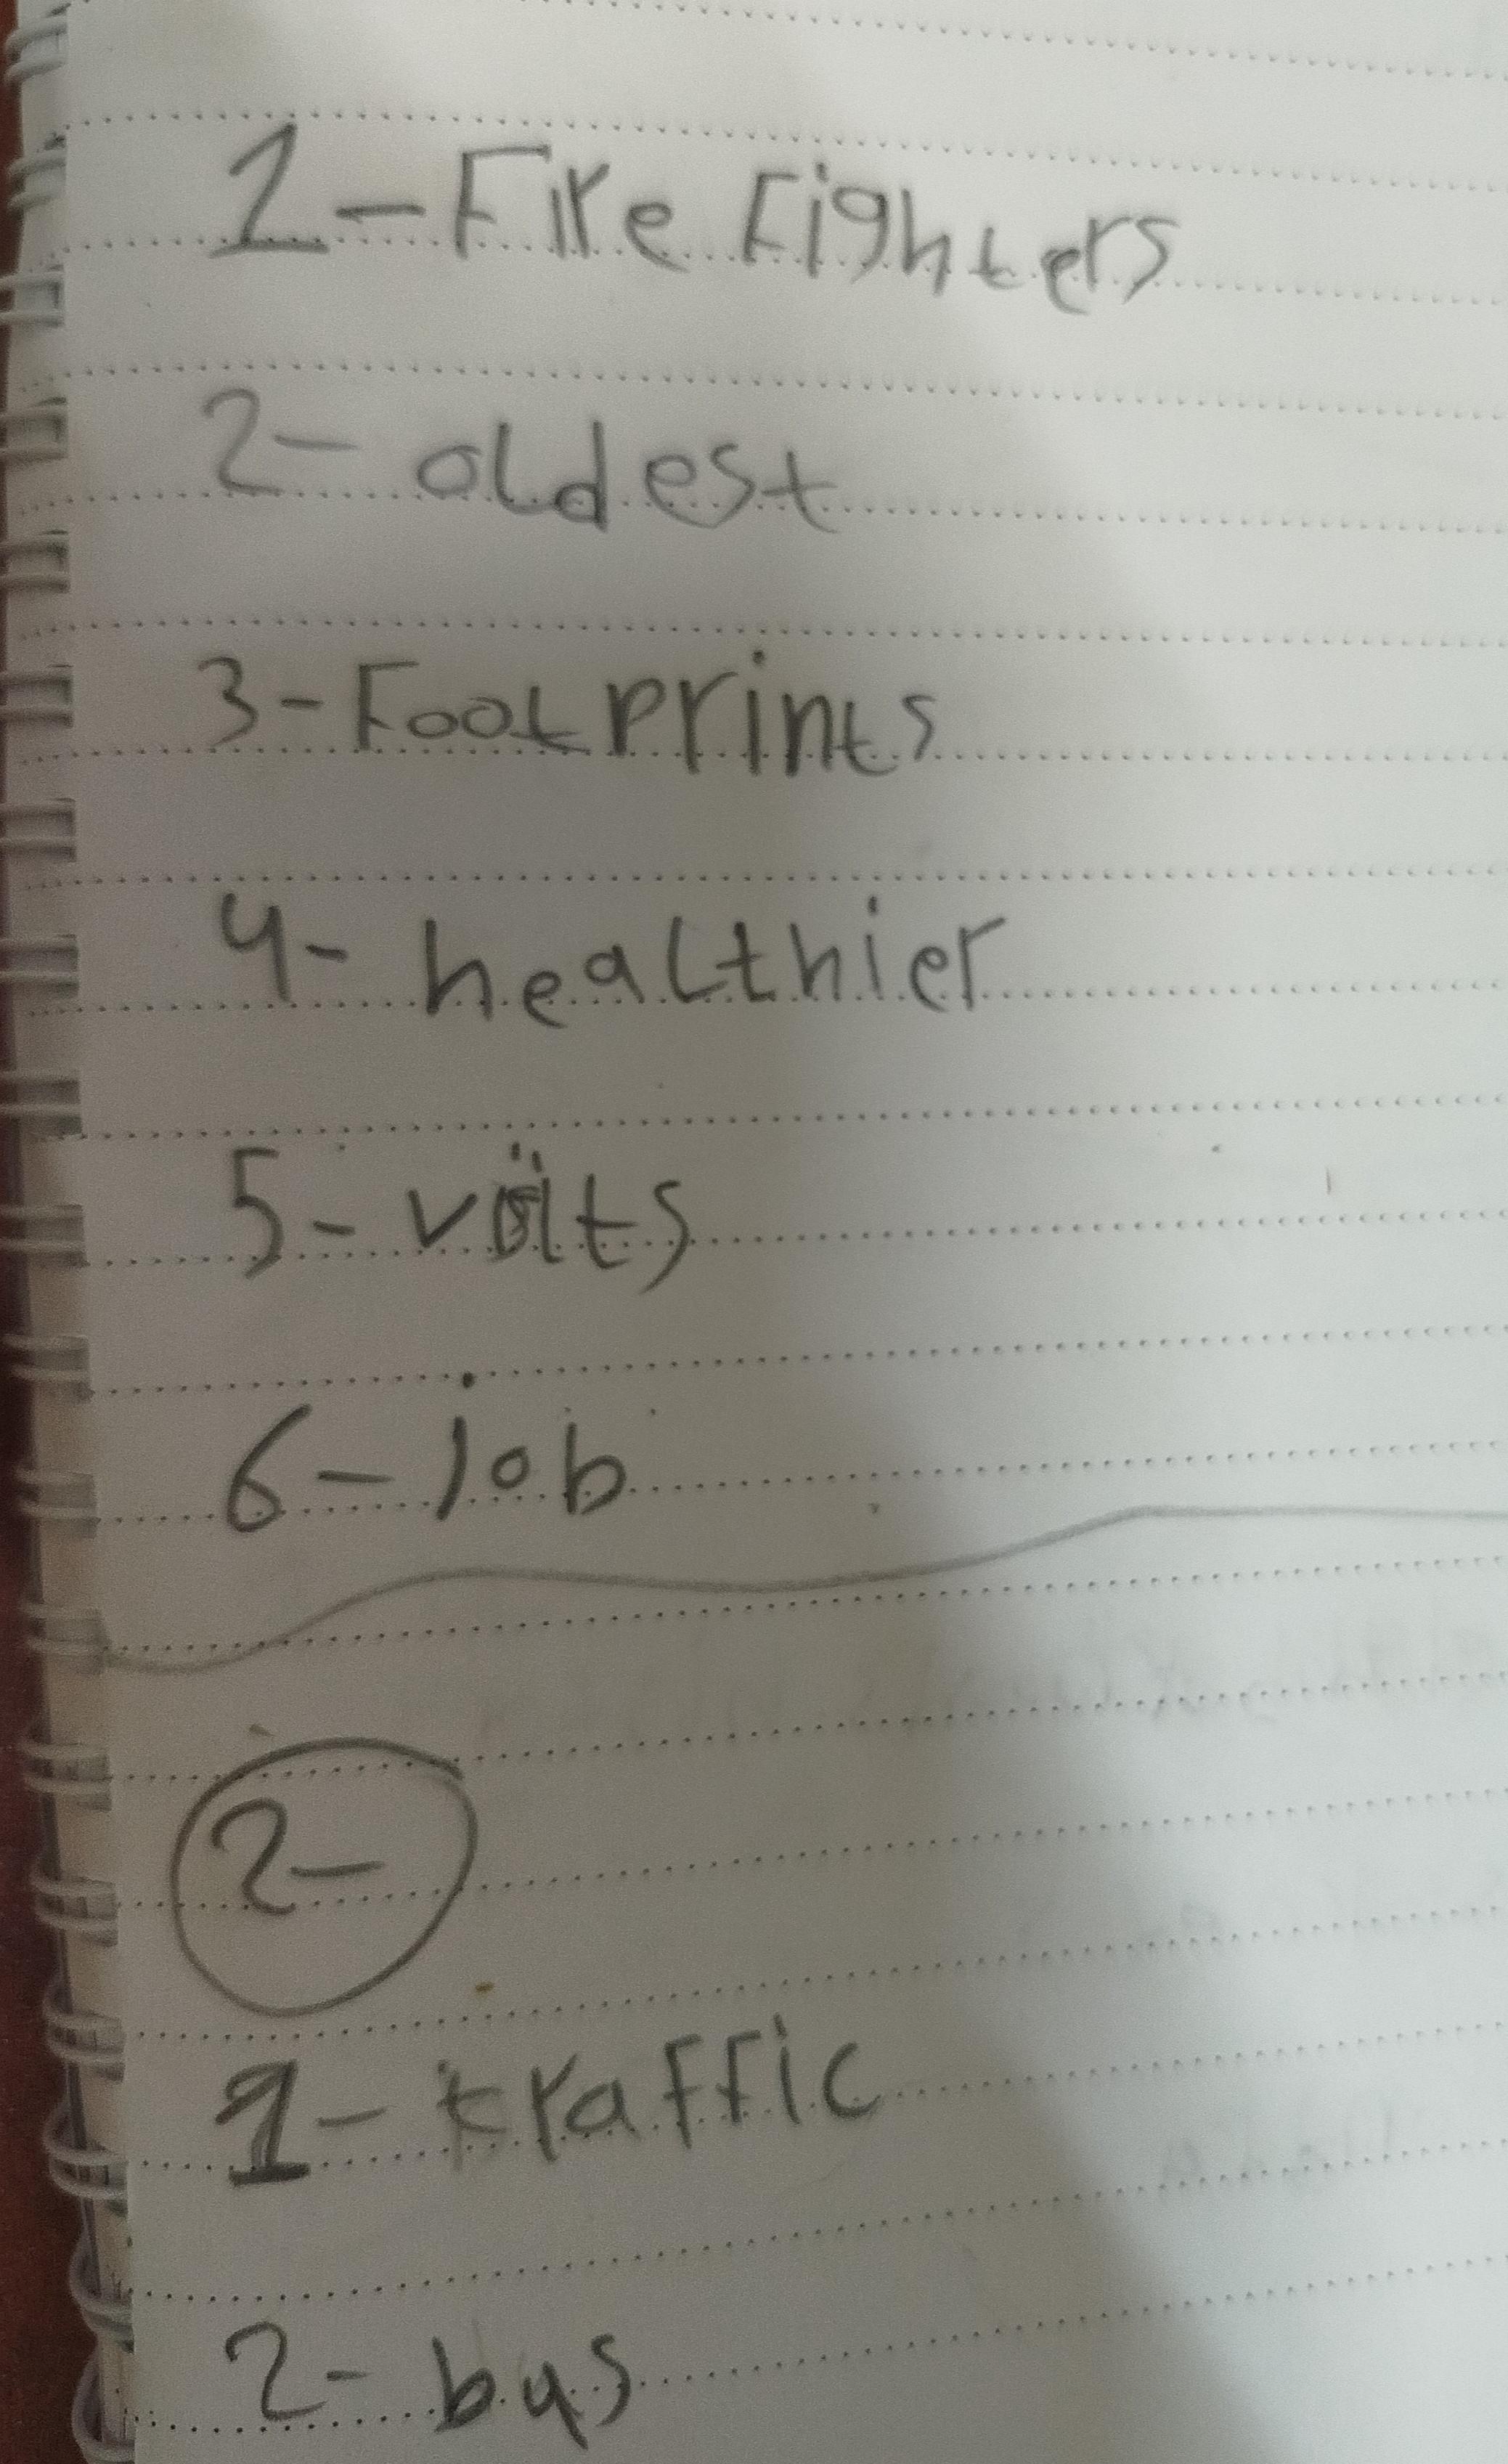 1- Fire Fighters
2- oldest
3- Foot prints
4- healthier
5-
6- job
2-
1- traffic
2- bus